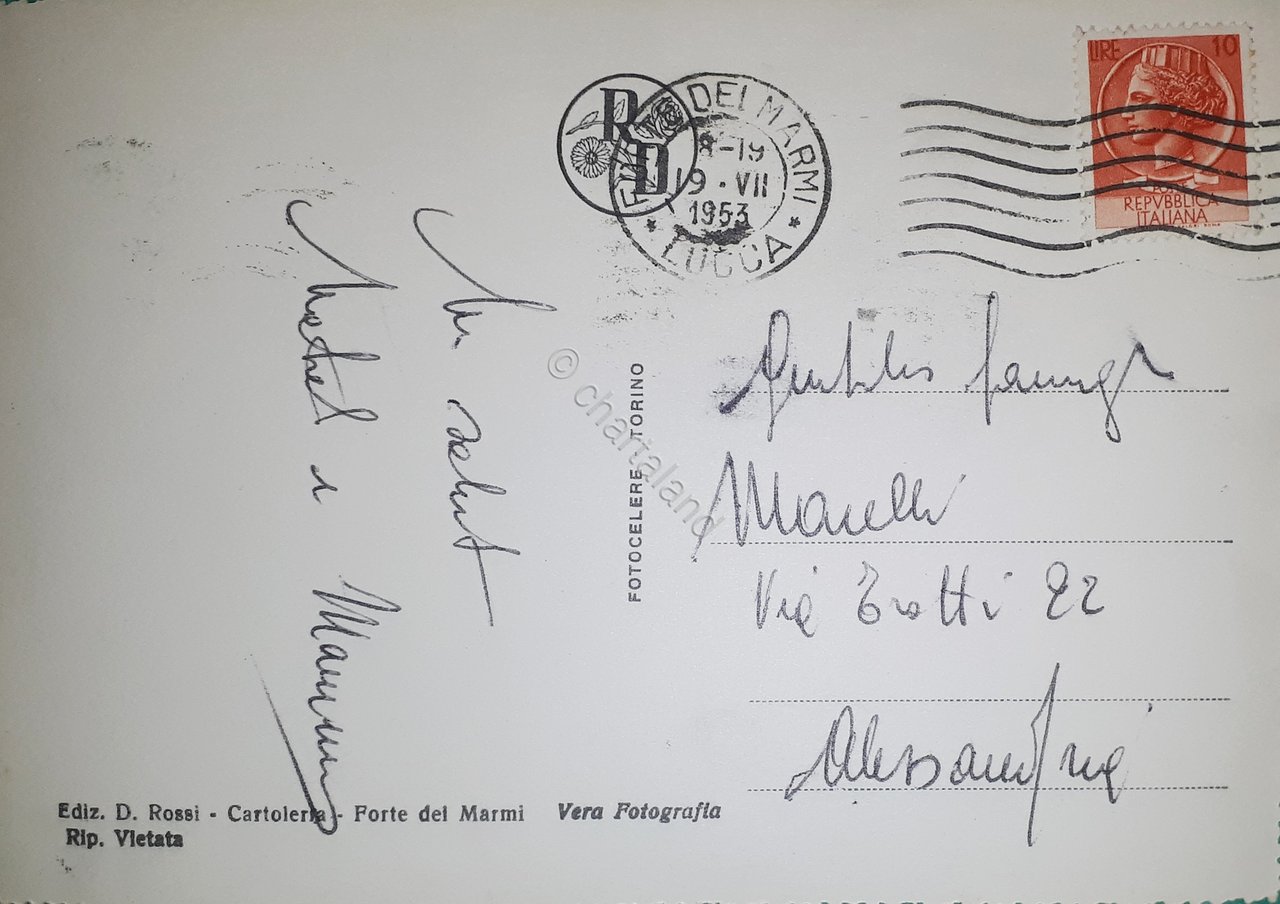 LIRE 10
REPVBBLICA
ITALIANA
RD
FORTE DEI MARMI
8-19
19 · VII
1953
* LUCCA *
© chartaland
FOTOCELERE TORINO
Un salut
e
Marelli
Via Trotti 22
Alessandria
Ediz. D. Rossi - Cartoleria - Forte dei Marmi Vera Fotografia
Rip. Vietata